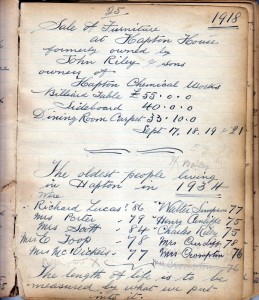 25.
1918
Sale of Furniture
at Hapton House
formerly owned by
John Riley & Sons
owners of
Hapton Chemical Works
Billiard Table £55.0.0
Sideboard 40.0.0
Dining Room Carpet 33.10.0
Sept 17, 18, 19 & 21
The oldest people living
in Hapton in 1934
were
Richard Lucas '86 Walter Simpson 77
Mrs Porter - 79 Henry 75
Mrs Scott - 84 Charles Riley 75
Mrs E Toop - 78 Mrs Cundiff 78
Mrs McDickes - 77 Mrs Crompton 76
The length of life is to be
measured by what we put
into it.